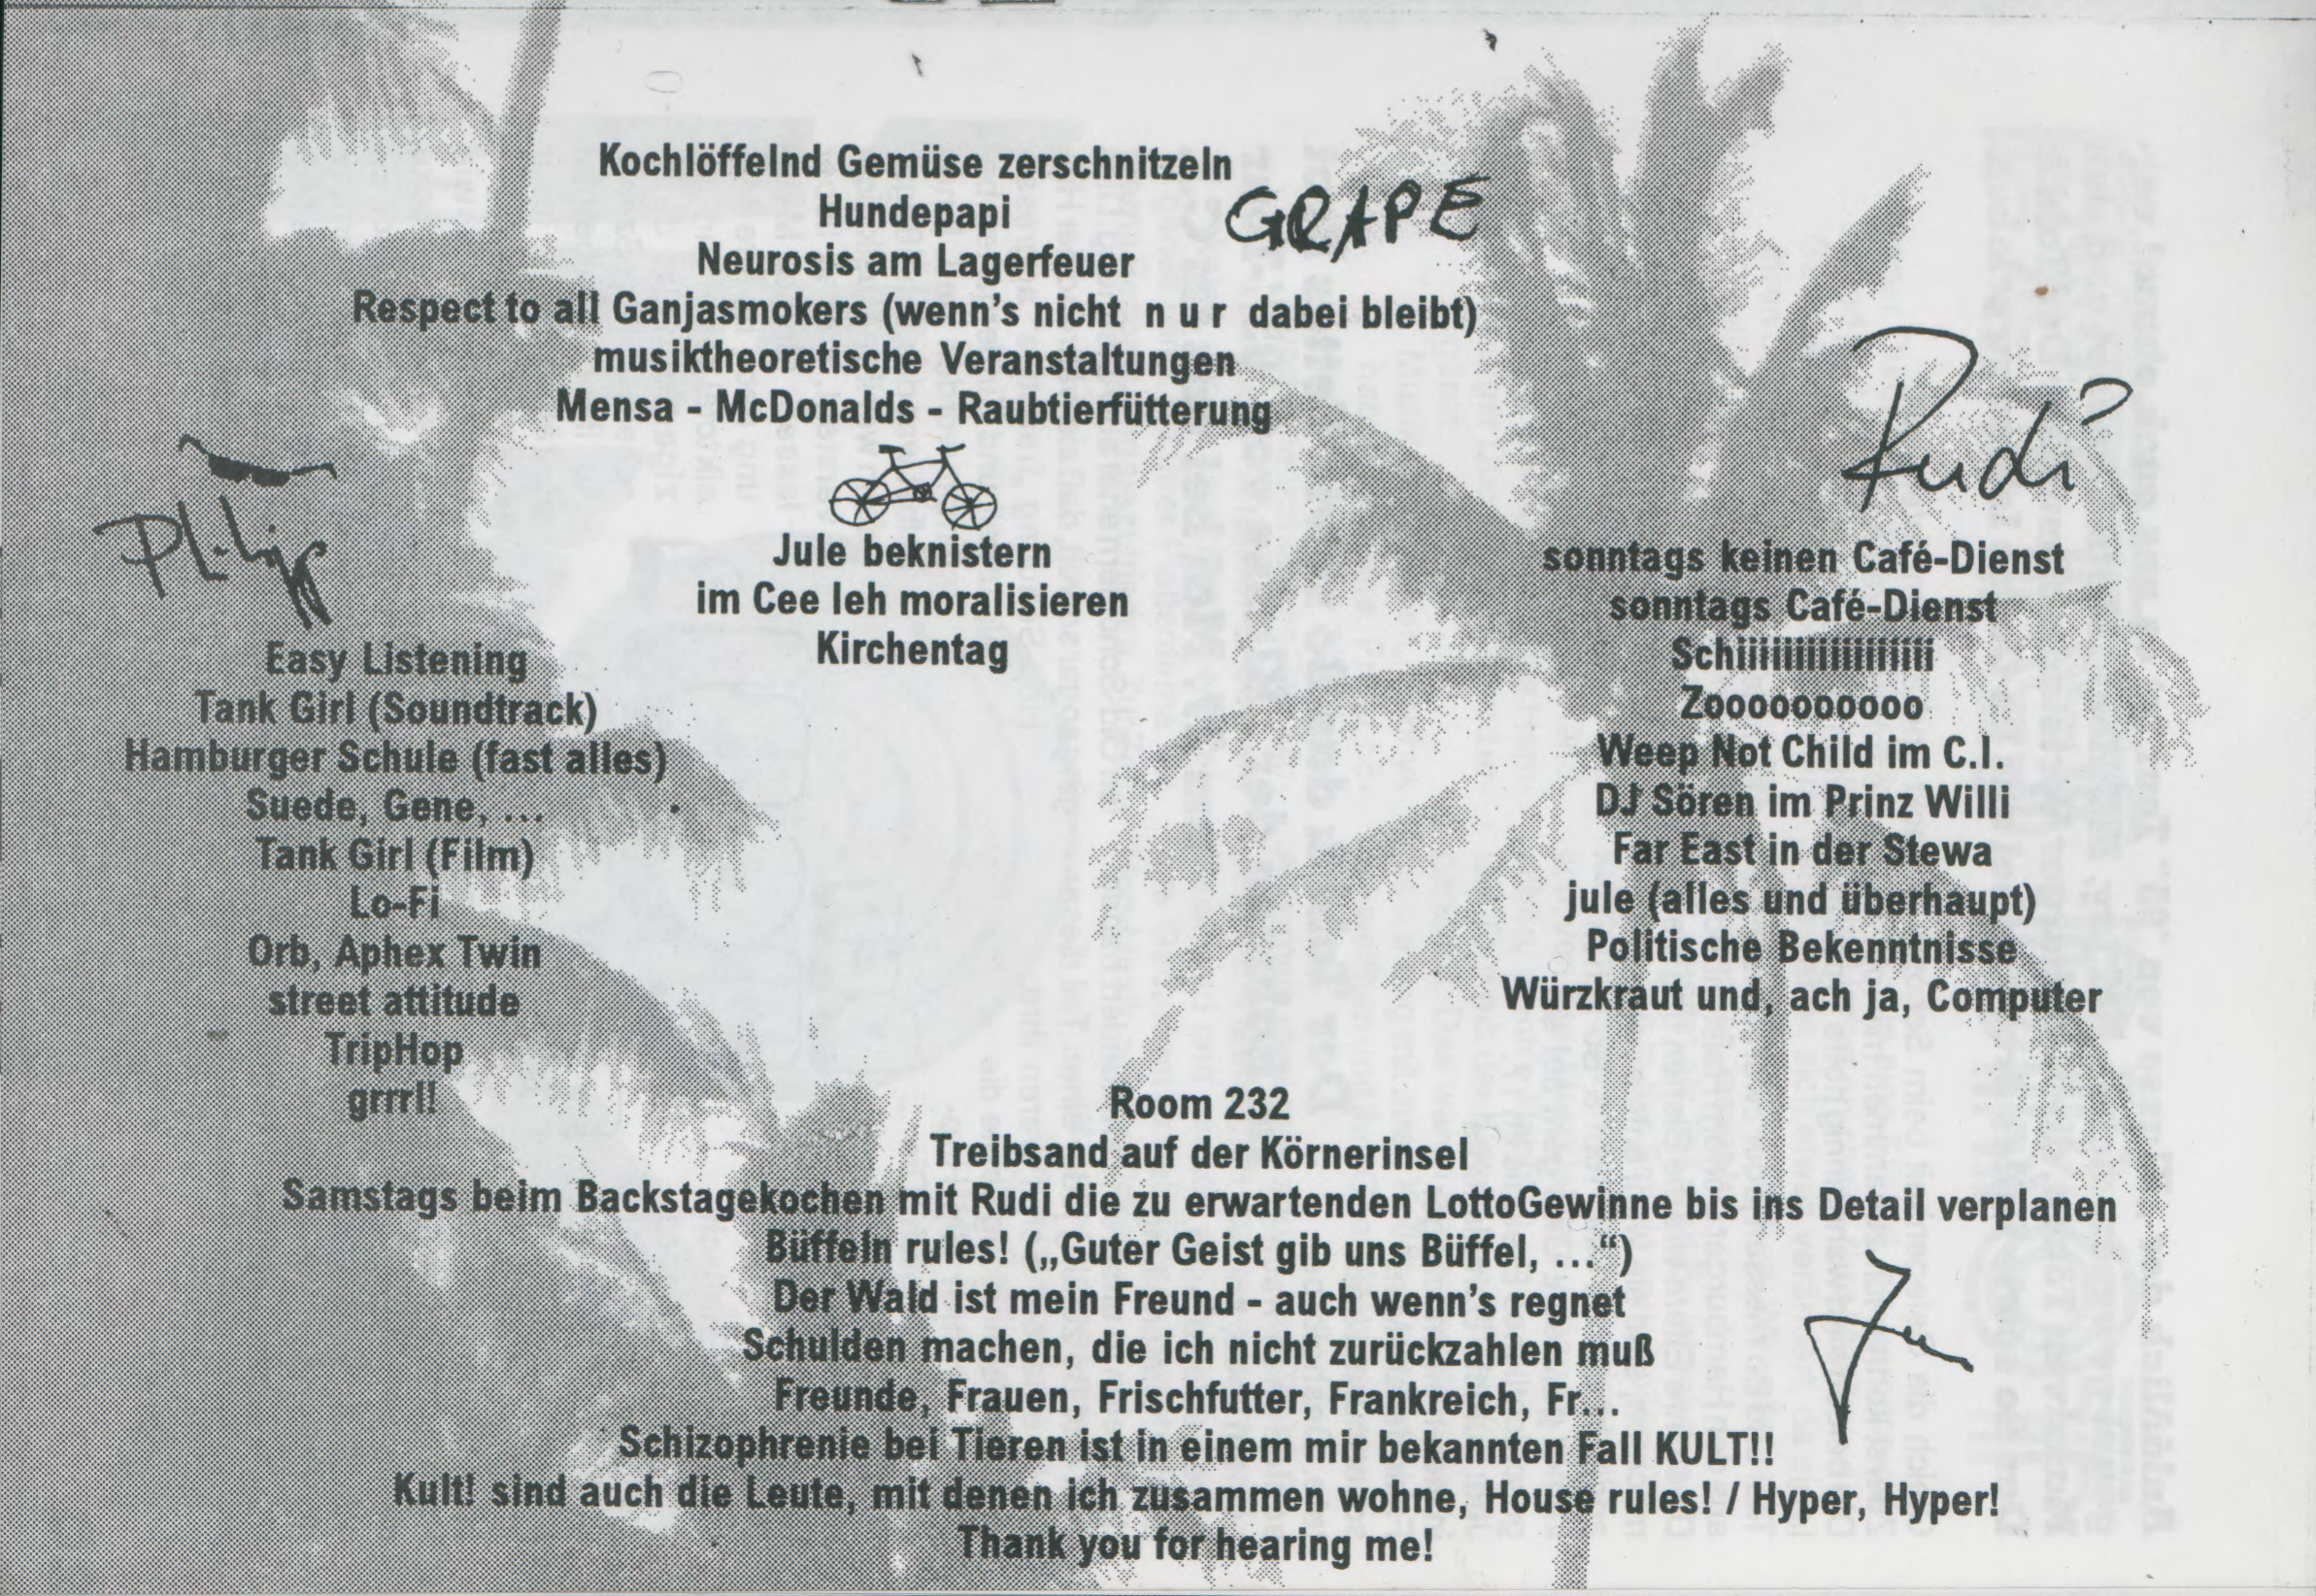 Kochlöffelnd Gemüse zerschnitzeln
Hundepapi
GRAPE
Neurosis am Lagerfeuer
Respect to all Ganjasmokers (wenn's nicht n u r dabei bleibt)
musiktheoretische Veranstaltungen
Mensa - McDonalds - Raubtierfütterung
Jule beknistern
im Cee Ieh moralisieren
Kirchentag
Philipp
Easy Listening
Tank Girl (Soundtrack)
Hamburger Schule (fast alles)
Suede, Gene, ...
Tank Girl (Film)
Lo-Fi
Orb, Aphex Twin
street attitude
TripHop
grrrl!
Rudi
sonntags keinen Café-Dienst
sonntags Café-Dienst
Schiiiiiiiiiiiiiiiiiii
Zooooooooooo
Weep Not Child im C.I.
DJ Sören im Prinz Willi
Far East in der Stewa
jule (alles und überhaupt)
Politische Bekenntnisse
Würzkraut und, ach ja, Computer
Room 232
Treibsand auf der Körnerinsel
Samstags beim Backstagekochen mit Rudi die zu erwartenden LottoGewinne bis ins Detail verplanen
Büffeln rules! („Guter Geist gib uns Büffel, ...“)
Der Wald ist mein Freund - auch wenn's regnet
Schulden machen, die ich nicht zurückzahlen muß
Freunde, Frauen, Frischfutter, Frankreich, Fr...
Schizophrenie bei Tieren ist in einem mir bekannten Fall KULT!!
Kult! sind auch die Leute, mit denen ich zusammen wohne, House rules! / Hyper, Hyper!
Thank you for hearing me!